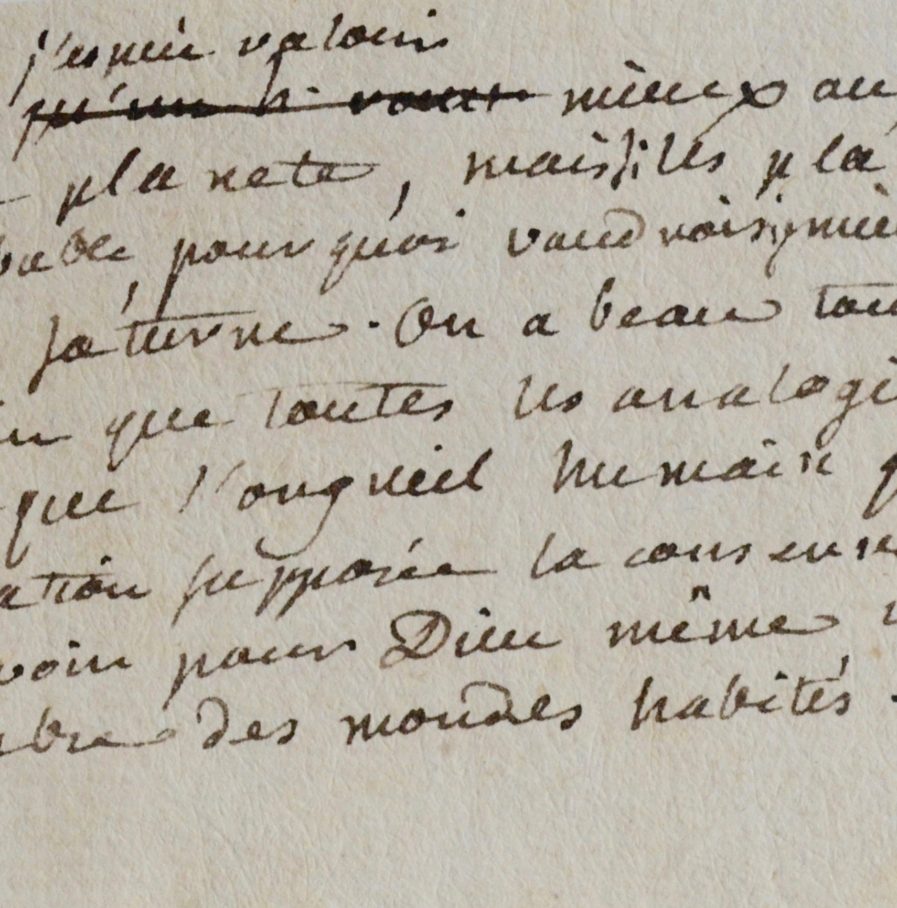 j'espére valoir
mieux au
planete, mais si les pla
bable, pourquoi vaudrois-je mie
saturne. On a beau tou
in que toutes les analogi
que l'orgueil humain q
ation supposée la conserv
voir pour Dieu même
bre des mondes habités.